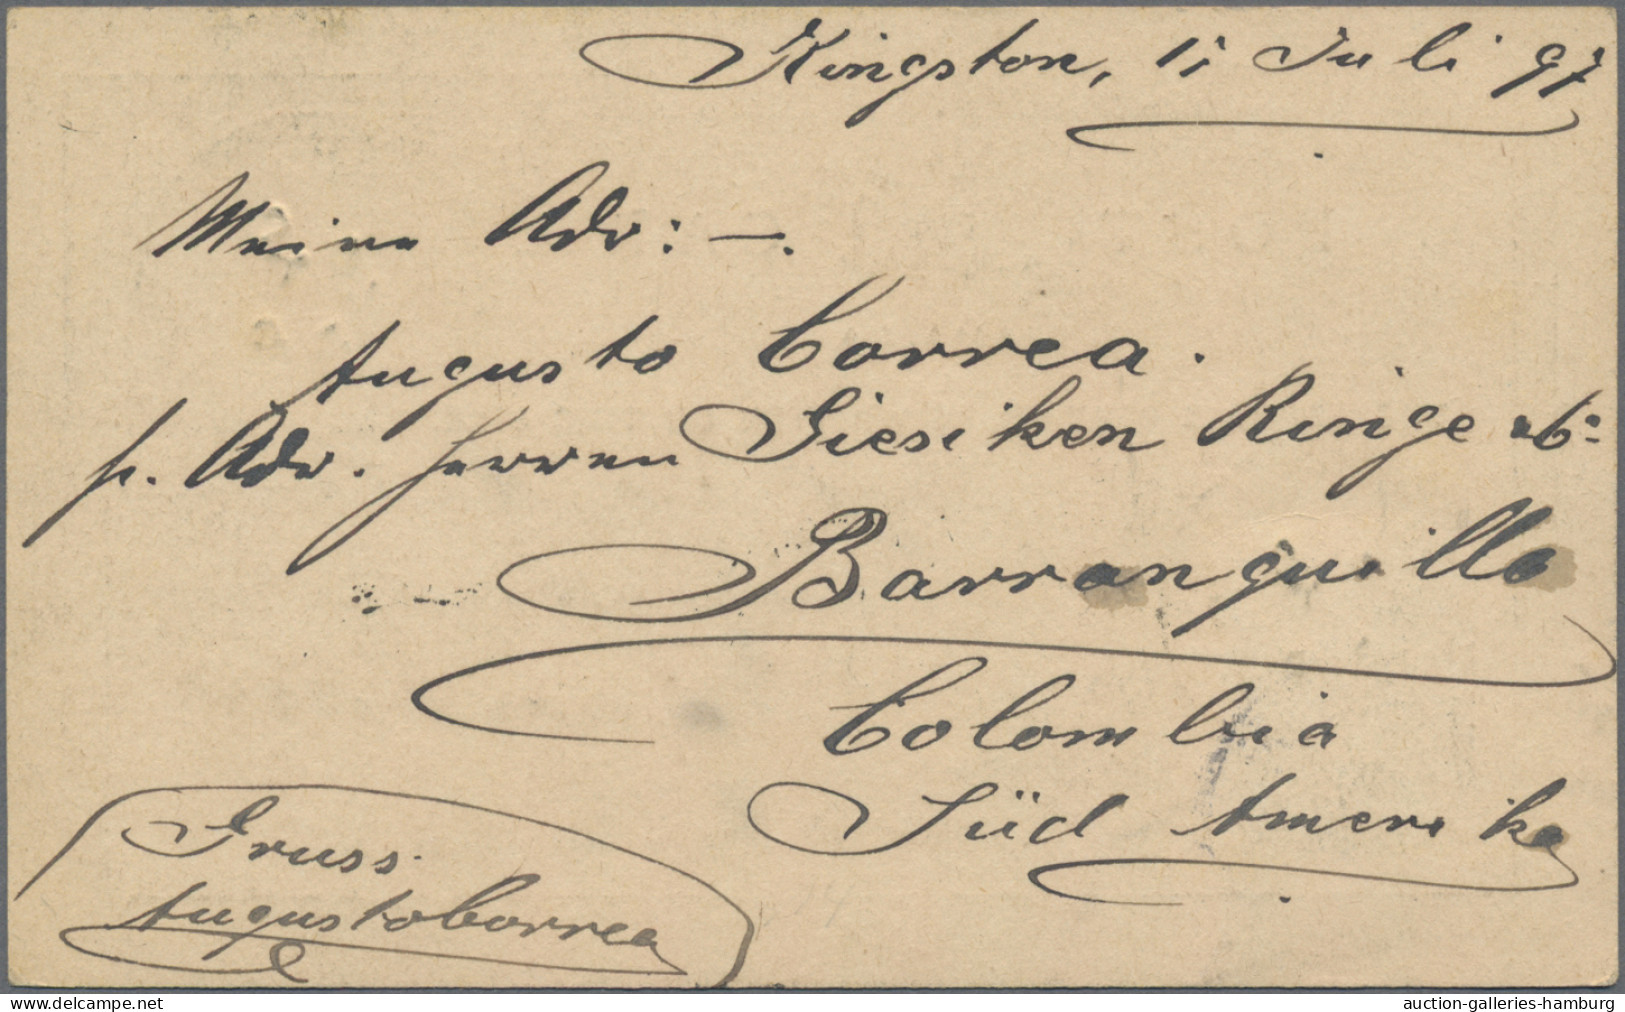 Kingston, 11 Juli 97
Meine Adr: —.
Augusto Correa.
p. Adr. Herren Siesiken Ringe &
Barranquilla
Colombia
Süd Amerika
Gruss
Augusto Correa
delcampe.net
auction-galleries-hamburg